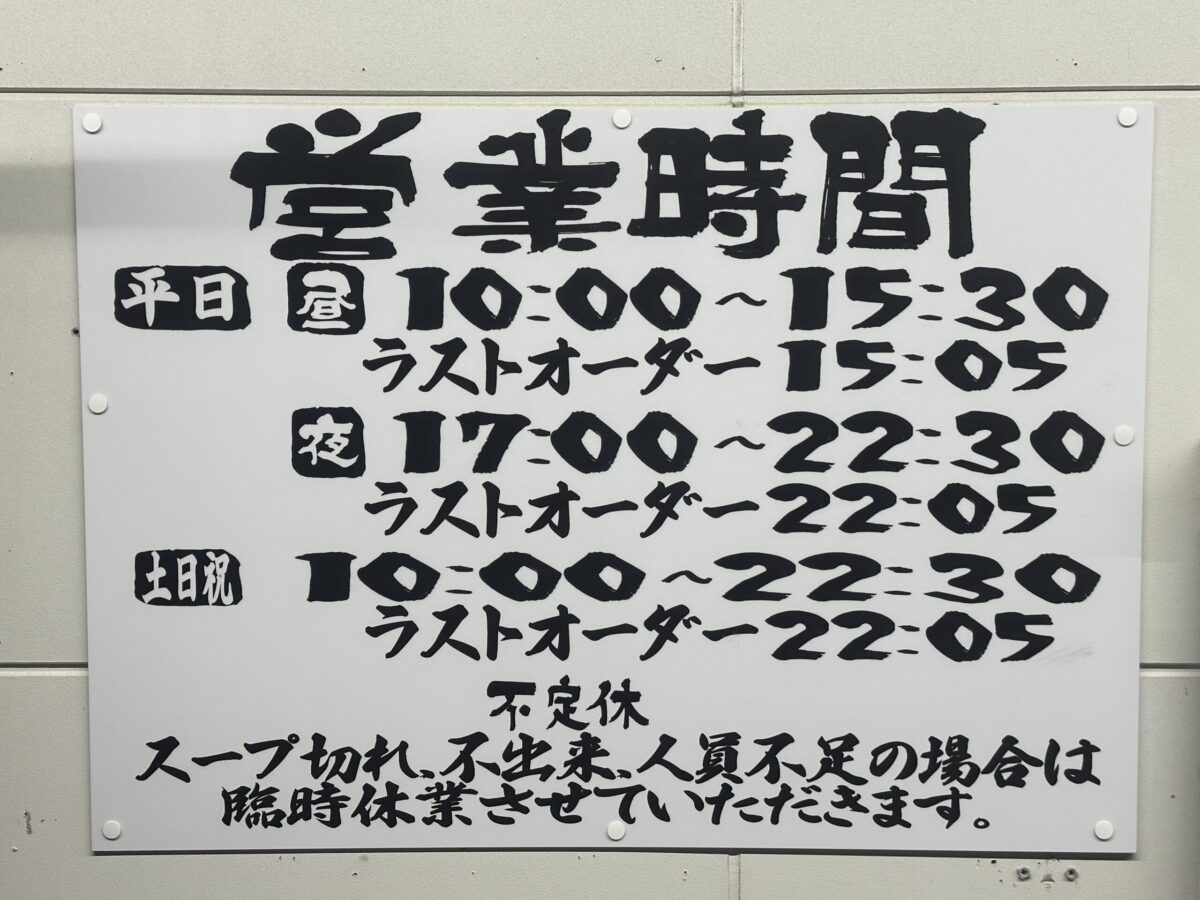 営業時間
平日 昼 10:00～15:30
ラストオーダー15:05
夜 17:00～22:30
ラストオーダー22:05
土日祝 10:00～22:30
ラストオーダー22:05
不定休
スープ切れ、不出来、人員不足の場合は
臨時休業させていただきます。